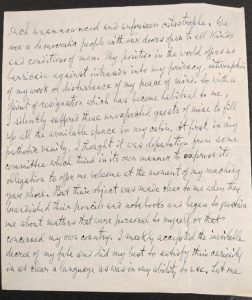 such unannounced and unforeseen catastrophe. We
are a democratic people with our doors open to all kinds
and conditions of men. My position in the world offers no
barricade against intrusion into my privacy, interruption
of my work or disturbance of my peace of mind. So with a
spirit of resignation which has become habitual to me,
I silently suffered these unexpected guests of mine to fill
up all the available space in my cabin. At first, in my
pathetic vanity, I thought it was deputation from some
committee which tried in its own manner to express its
obligation to offer me welcome at the moment of my reaching
your shore. But their object was made clear to me when they
brandished their pencils and notebooks and began to question
me about matters that were personal to myself or that
concerned my own country. I meekly accepted the inevitable
decree of my fate and did my best to satisfy their curiosity
in as clear a language as was in my ability to use. Let me